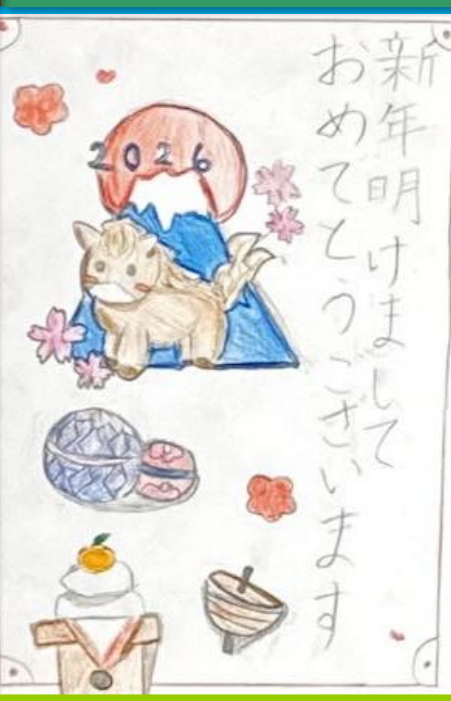 新年明けまして
おめでとうございます
2026